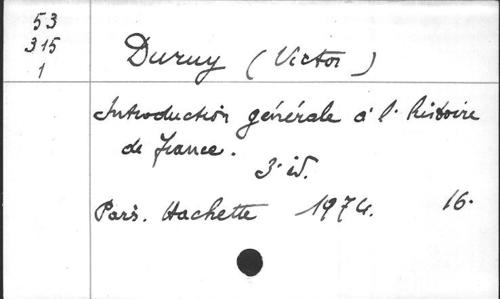 53
315
1
Duruy (Victor)
Introduction générale à l'histoire
de France.
3e éd.
Paris. Hachette 1974. 16.